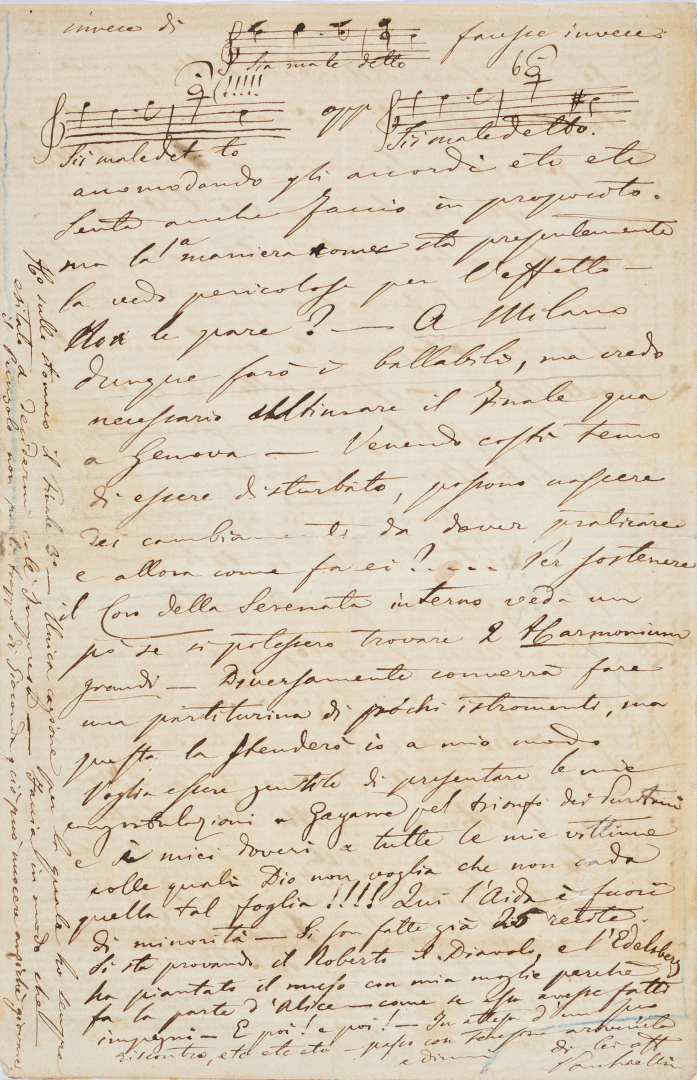 invece di
Sia male detto
facesse invece:
Sii maledetto
opp
Sii maledetto.
accomodando gli accordi etc etc
Senta anche Faccio in proposito.
ma la 1a maniera come sta presentemente
la vedo pericolosa per l'effetto —
Non le pare? — A Milano
dunque farò i ballabili, ma credo
necessario ultimare il Finale qua
a Genova — Venendo costì temo
di essere disturbato, possono nascere
dei cambiamenti da dover praticare
e allora come farei?.... Per sostenere
il Coro della Serenata interno veda un
pò se si potessero trovare 2 Harmonium
grandi — Diversamente converrà fare
una partiturina di pochi istromenti, ma
questa la stenderò io a mio modo
Voglia essere gentile di presentare le mie
congratulazioni a Gayarre pel trionfo dei Puritani
e i miei doveri a tutte le mie vittime
colle quali Dio non voglia che non cada
quella tal foglia!!!! Qui l'Aida è fuori
di minorità — Si son fatte già 25 recite.
Si sta provando il Roberto il Diavolo, e l'Edelsberg
ha piantato il muso con mia moglie perchè
fa la parte d'Alice — come se essa avesse fatti
impegni — E poi! e poi! — In attesa d'un suo
riscontro, etc etc etc — passo con
di lei aff
Ponchielli
Ho sullo stomaco il Finale 3o — Unica cagione per la quale ho sempre
esitato a decidermi coll' Impresa — Faccia in modo che
il Pungolo non parli troppo di Gioconda, ciò può nuocere anzichè giovare